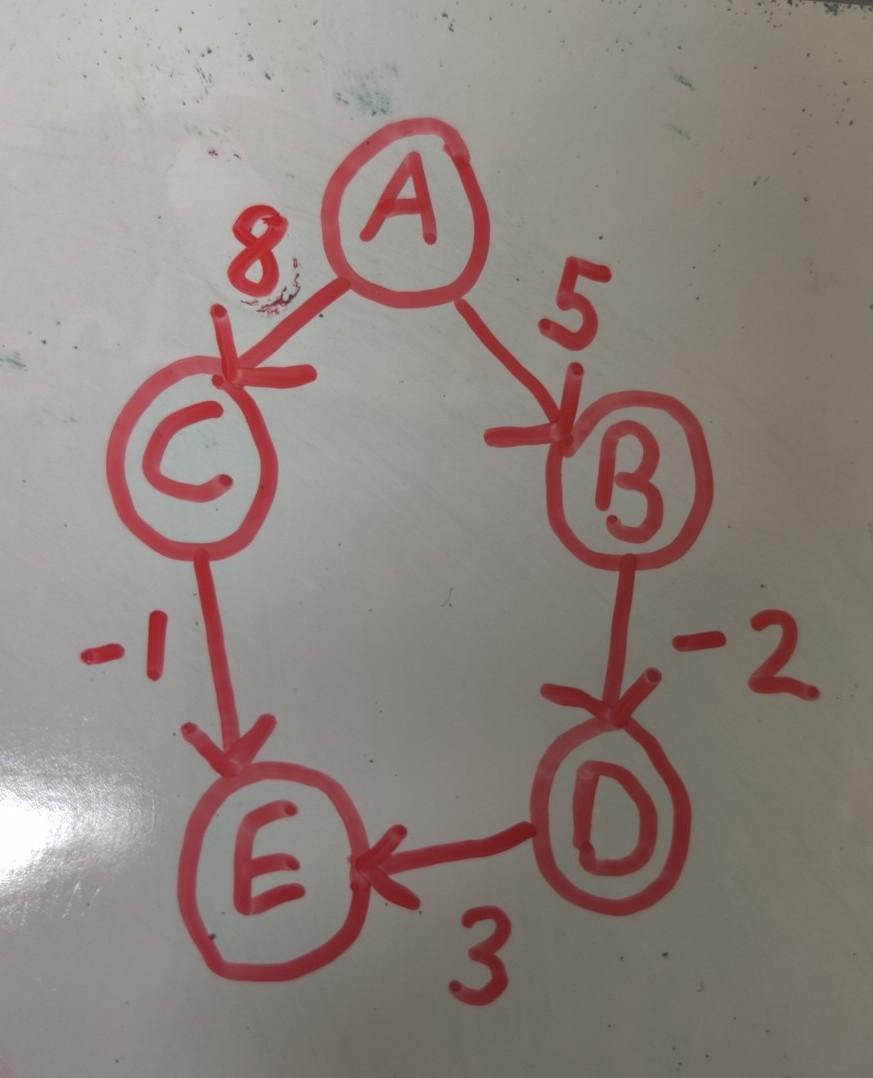 A
8
5
C
B
-1
-2
E
D
3